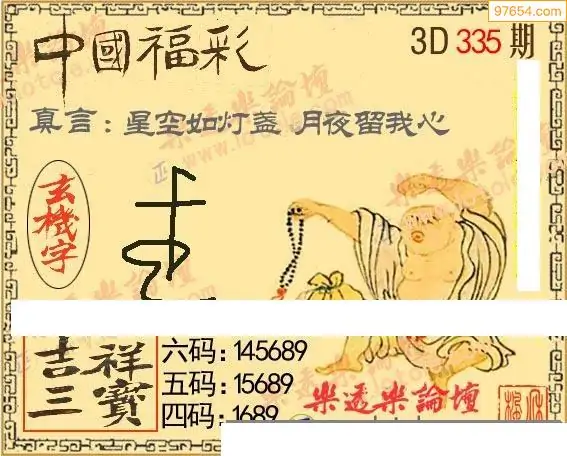 97654.com
中國福彩
3D 335 期
真言：星空如灯盏 月夜留我心
玄機字
吉祥
三寶
六码:145689
五码:15689
四码:1689
樂透樂論壇